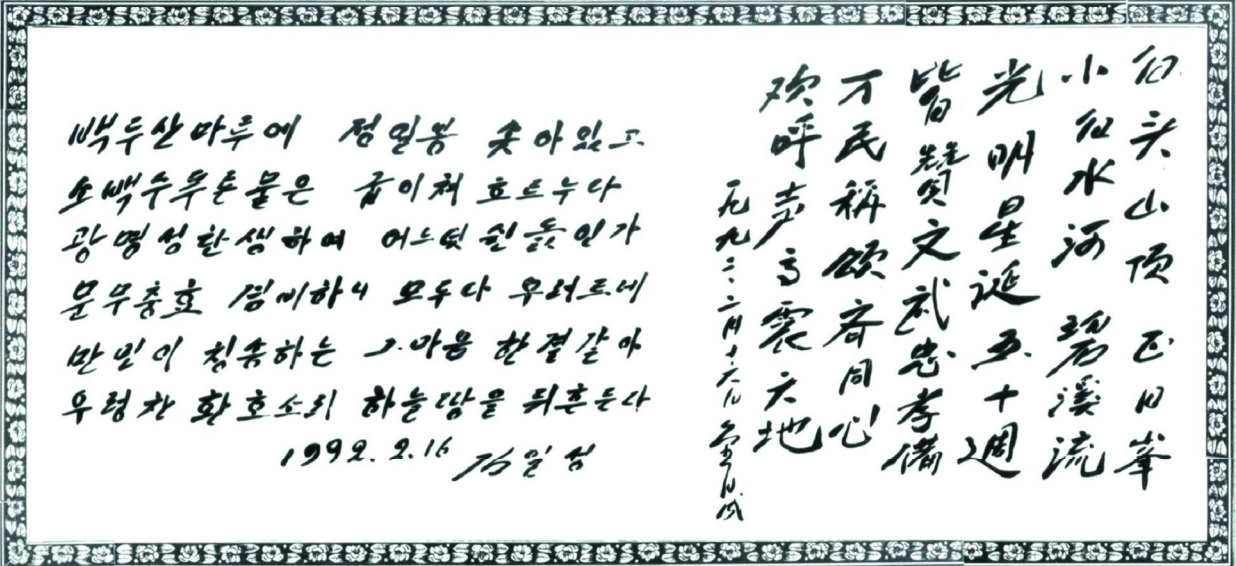 백두산마루에 정일봉 솟아있고
소백수푸른물은 굽이쳐 흐르누나
광명성탄생하여 어느덧 쉰돐인가
문무충효 겸비하니 모두다 우러르네
만민이 칭송하는 그마음 한결같아
우렁찬 환호소리 하늘땅을 뒤흔든다
1992. 2. 16 김일성
白头山顶 正日峯
小白水河 碧溪流
光明星诞五十週
皆贊文武忠孝備
万民稱頌齐同心
欢呼声高震天地
一九九二·二月十六日 金日成